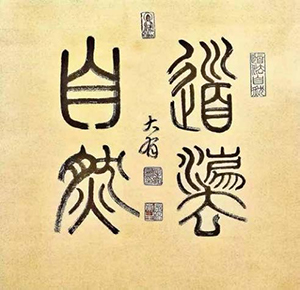 道法
自然
大有